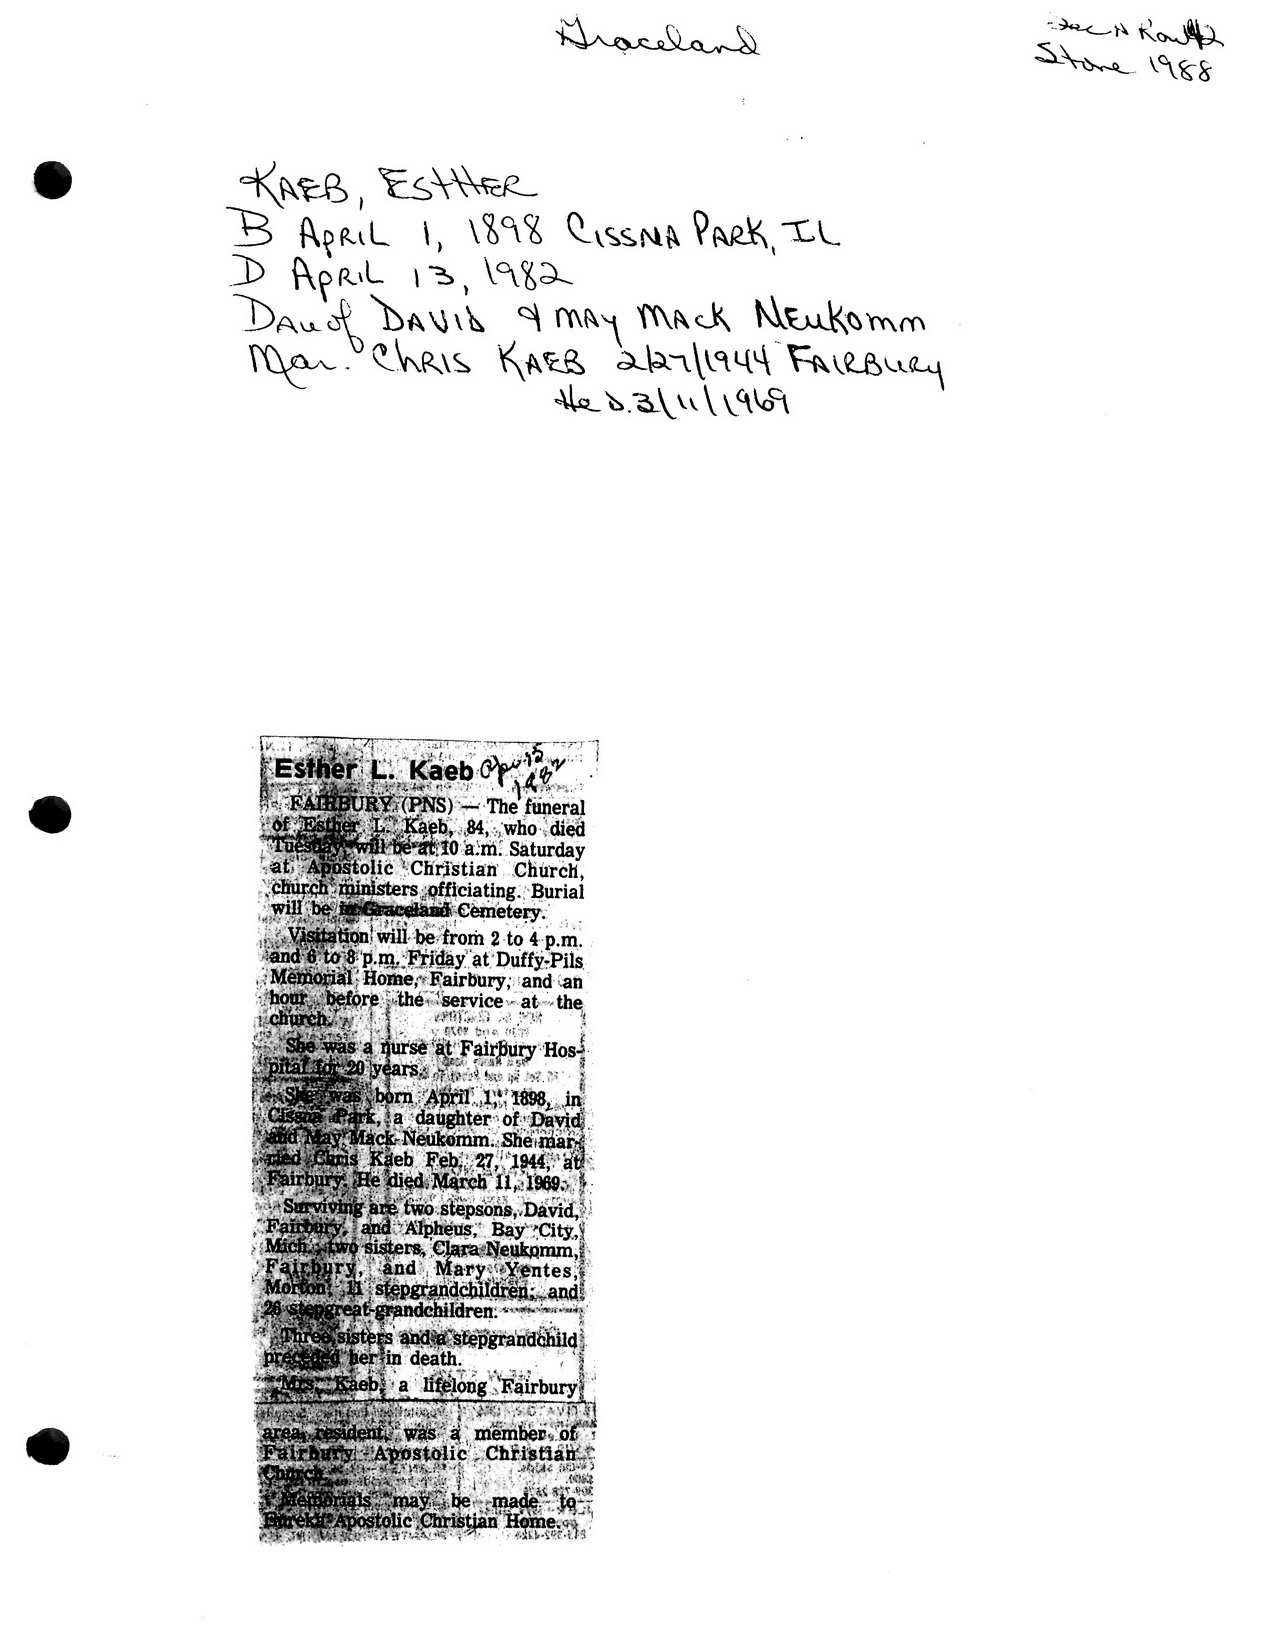 Graceland
Sec N Row 42
Stone 1988
KAEB, ESTHER
B APRIL 1, 1898 CISSNA PARK, IL
D APRIL 13, 1982
DAU of DAVID & MAY MACK NEUKOMM
Mar. CHRIS KAEB 2/27/1944 FAIRBURY
He D. 3/11/1969
Esther L. Kaeb Apr 15
1982
FAIRBURY (PNS) — The funeral
of Esther L. Kaeb, 84, who died
Tuesday, will be at 10 a.m. Saturday
at Apostolic Christian Church,
church ministers officiating. Burial
will be in Graceland Cemetery.
Visitation will be from 2 to 4 p.m.
and 6 to 8 p.m. Friday at Duffy-Pils
Memorial Home, Fairbury, and an
hour before the service at the
church.
She was a nurse at Fairbury Hos-
pital for 20 years.
She was born April 1, 1898, in
Cissna Park, a daughter of David
and May Mack Neukomm. She mar-
ried Chris Kaeb Feb. 27, 1944, at
Fairbury. He died March 11, 1969.
Surviving are two stepsons, David,
Fairbury, and Alpheus, Bay City,
Mich.; two sisters, Clara Neukomm,
Fairbury, and Mary Yentes,
Morton; 11 stepgrandchildren; and
26 stepgreat-grandchildren.
Three sisters and a stepgrandchild
preceded her in death.
Mrs. Kaeb, a lifelong Fairbury
area resident, was a member of
Fairbury Apostolic Christian
Church.
Memorials may be made to
Eureka Apostolic Christian Home.